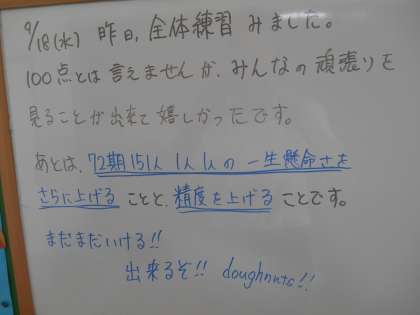 9/18(水) 昨日、全体練習 みました。
100点とは 言えませんが、みんなの頑張りを
見ることが出来て嬉しかったです。
あとは、72期151人 1人1人の 一生懸命さを
さらに上げる ことと、精度を上げる ことです。
まだまだいける!!
出来るぞ!! doughnuts!!